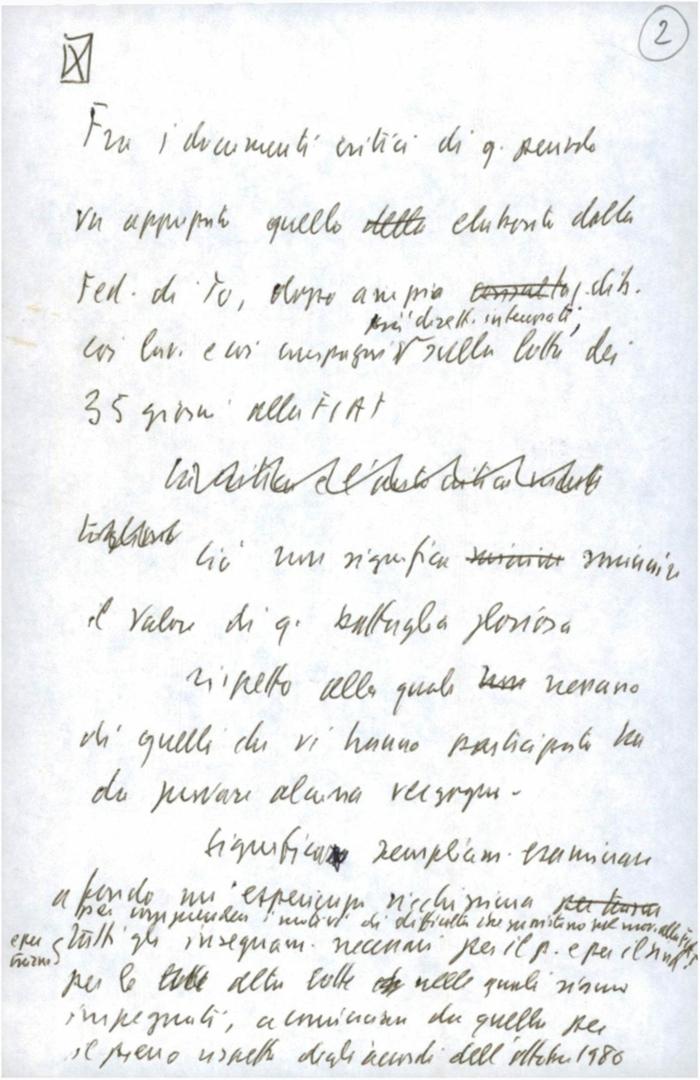 2
Fra i documenti critici di q. periodo
va appropriato quello della elaborato dalla
Fed. di To, dopo ampia consultaz. dib.
più dirett. interessati,
coi lav. e coi compagni sulla lotta dei
35 giorni alla FIAT
Ciò non significa sminuire sminuire
il valore di q. battaglia gloriosa
rispetto alla quale non nessuno
di quelli che vi hanno partecipato ha
da provare alcuna vergogna.
Significa semplicem. esaminare
a fondo un'esperienza ricchissima per trarne
per comprendere i motivi di difficoltà che
e per
trarne
tutti gli insegnam. necessari per il p. e per il sind.
per le lotte altre lotte nelle quali siamo
impegnati, a cominciare da quella per
il pieno rispetto degli accordi dell'ottobre 1980